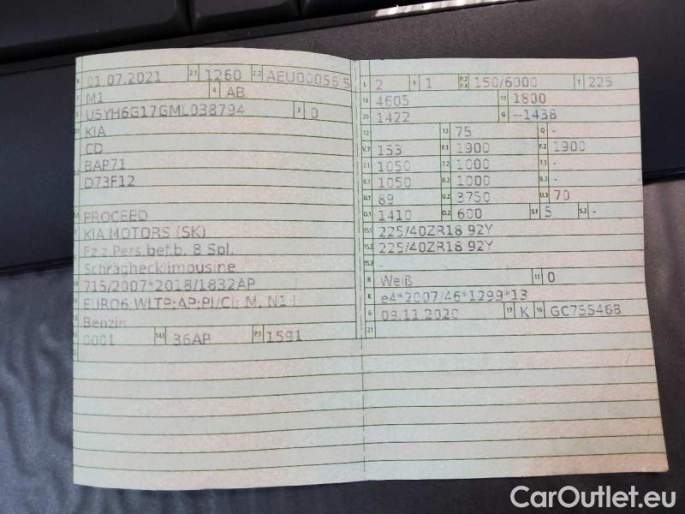 01.07.2021 2.1 1260 2.2 AEU00056 5
M1 4 AB
U5YH6G17GML038794 3 0
KIA
CD
BAP71
D73F12
PROCEED
KIA MOTORS (SK)
Fz.z.Pers.bef.b. 8 Spl.
Schräghecklimousine
715/2007*2018/1832AP
EURO6 WLTP;AP;PI/CI; M, N1 I
Benzin
0001 14.1 36AP P.1 1591
L 2 9 1 P.2 P.4 150/6000 T 225
18 4605 19 1800
20 1422 G --1438
12 - 13 75 Q -
V.7 153 F.1 1900 F.2 1900
7.1 1050 7.2 1000 7.3 -
8.1 1050 8.2 1000 8.3 -
U.1 89 U.2 3750 U.3 70
O.1 1410 O.2 600 S.1 5 S.2 -
15.1 225/40ZR18 92Y
15.2 225/40ZR18 92Y
15.3 -
R Weiß 11 0
K e4*2007/46*1299*13
6 09.11.2020 17 K 16 GC755468
21
CarOutlet.eu